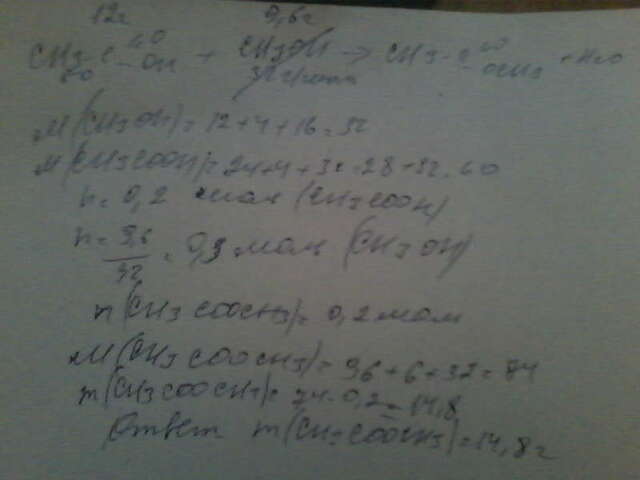 12г 9,6г
CH3-C=O-OH + CH3OH → CH3-C=O-OCH3 + H2O
60 32 г/моль
M(CH3OH)=12+4+16=32
M(CH3COOH)=24+4+32=28+32=60
n=0,2 мол (CH3COOH)
n=9,6/32=0,3 мол (CH3OH)
n(CH3COOCH3)=0,2 мол
M(CH3COOCH3)=36+6+32=74
m(CH3COOCH3)=74·0,2=14,8
Ответ m(CH3COOCH3)=14,8г